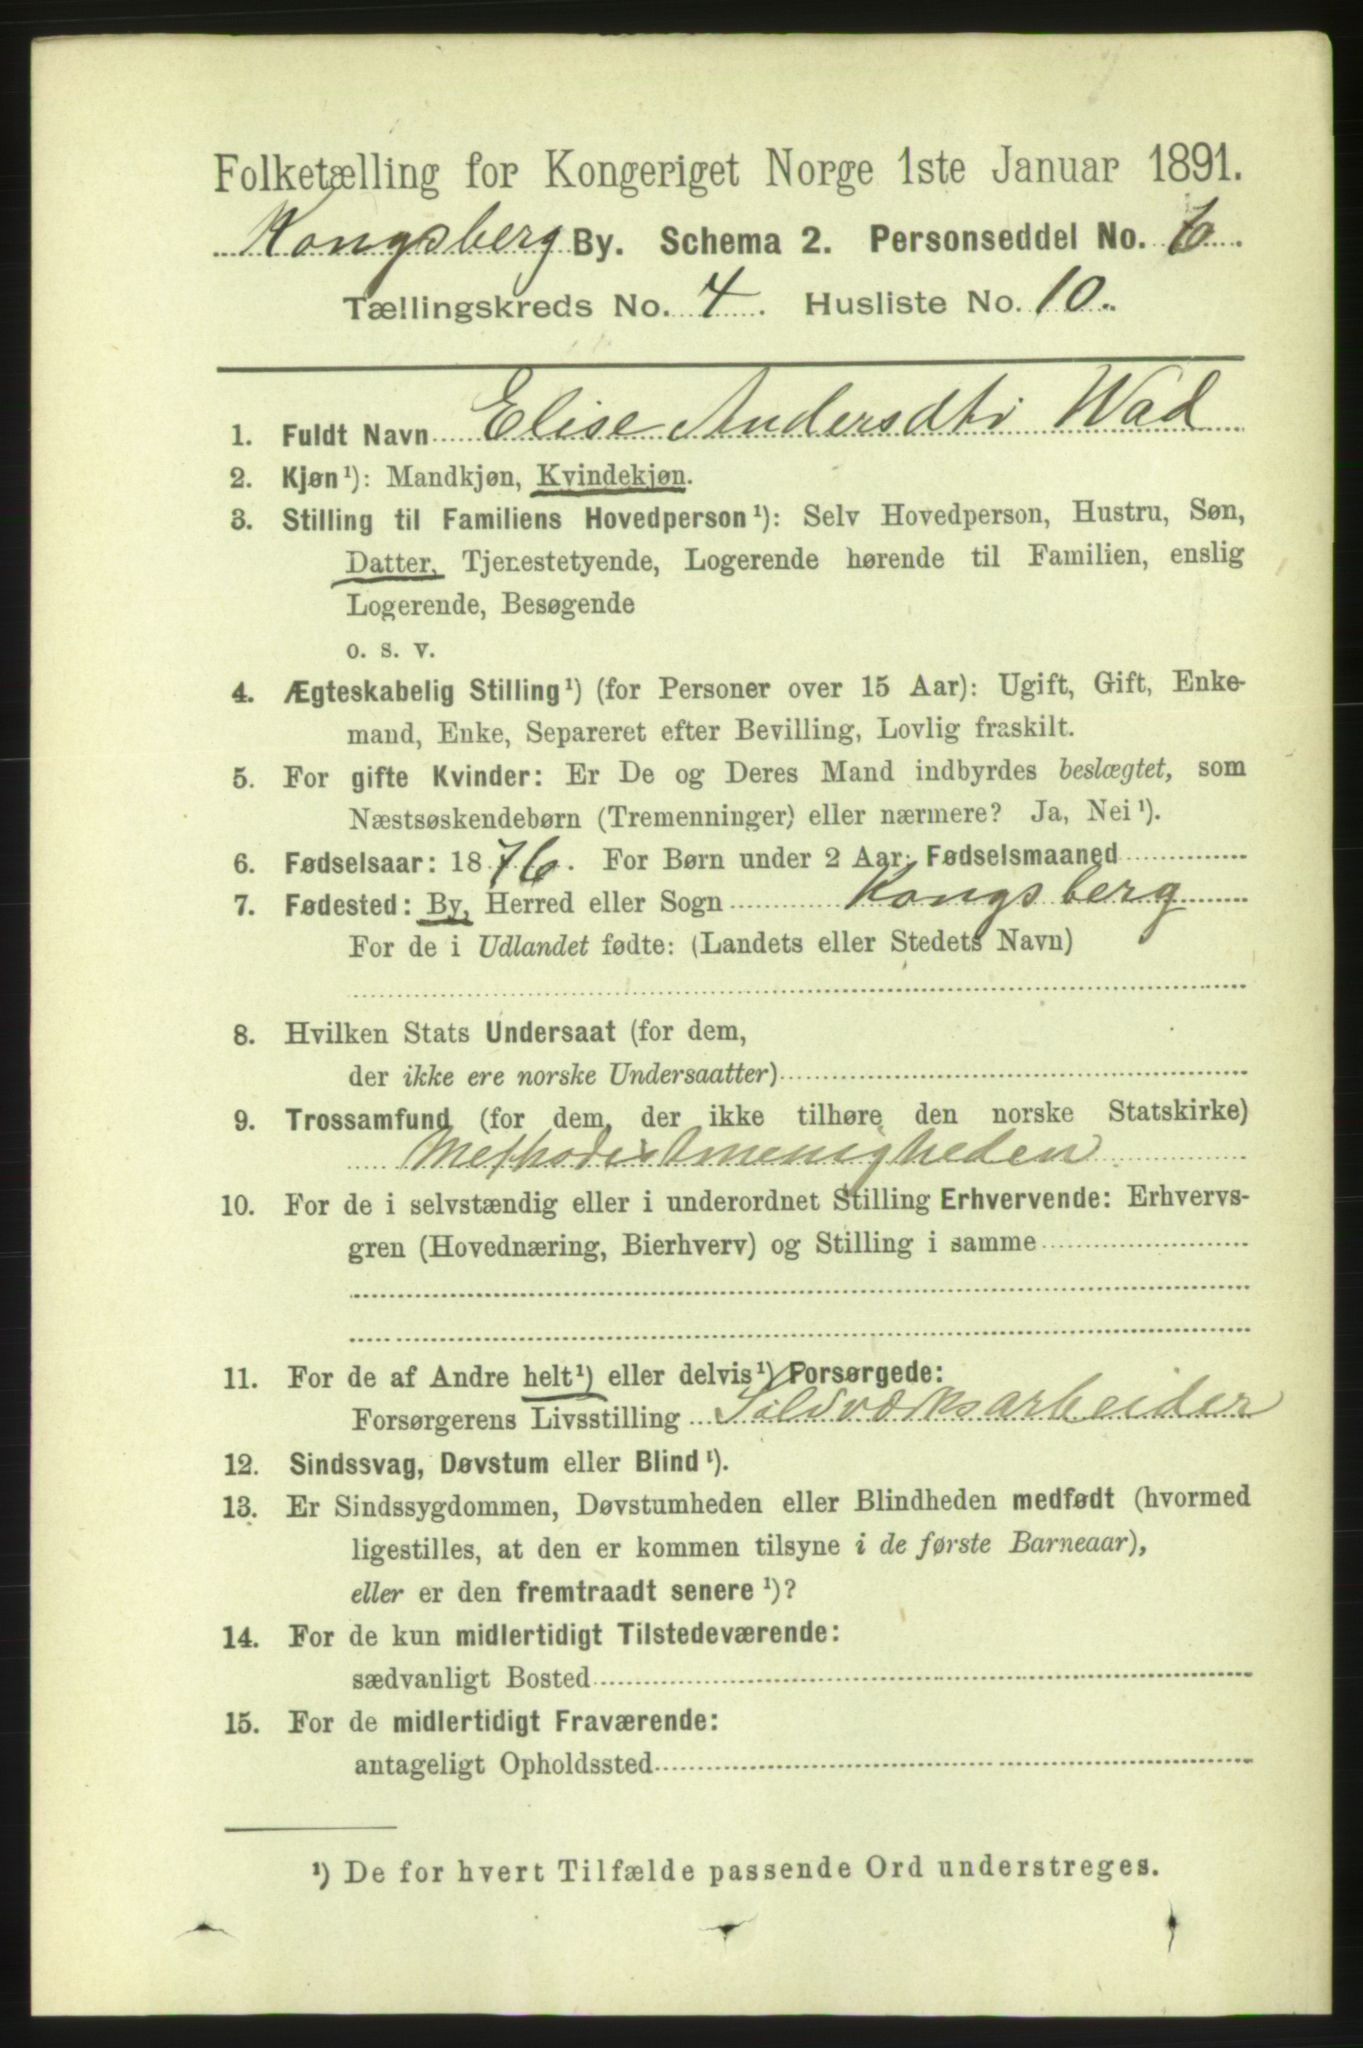 Folketælling for Kongeriget Norge 1ste Januar 1891.
Kongsberg By. Schema 2. Personseddel No. 6.
Tællingskreds No. 4. Husliste No. 10.
1. Fuldt Navn Elise Andersdtr Wad
2. Kjøn¹): Mandkjøn, Kvindekjøn.
3. Stilling til Familiens Hovedperson¹): Selv Hovedperson, Hustru, Søn,
Datter, Tjenestetyende, Logerende hørende til Familien, enslig
Logerende, Besøgende
o. s. v.
4. Ægteskabelig Stilling¹) (for Personer over 15 Aar): Ugift, Gift, Enke-
mand, Enke, Separeret efter Bevilling, Lovlig fraskilt.
5. For gifte Kvinder: Er De og Deres Mand indbyrdes beslægtet, som
Næstsøskendebørn (Tremenninger) eller nærmere? Ja, Nei¹).
6. Fødselsaar: 1876. For Børn under 2 Aar: Fødselsmaaned
7. Fødested: By, Herred eller Sogn Kongsberg
For de i Udlandet fødte: (Landets eller Stedets Navn)
8. Hvilken Stats Undersaat (for dem,
der ikke ere norske Undersaatter)
9. Trossamfund (for dem, der ikke tilhøre den norske Statskirke)
Methodistmenigheden
10. For de i selvstændig eller i underordnet Stilling Erhvervende: Erhvervs-
gren (Hovednæring, Bierhverv) og Stilling i samme
11. For de af Andre helt¹) eller delvis¹) Forsørgede:
Forsørgerens Livsstilling Sølvværksarbeider
12. Sindssvag, Døvstum eller Blind¹).
13. Er Sindssygdommen, Døvstumheden eller Blindheden medfødt (hvormed
ligestilles, at den er kommen tilsyne i de første Barneaar),
eller er den fremtraadt senere¹)?
14. For de kun midlertidigt Tilstedeværende:
sædvanligt Bosted
15. For de midlertidigt Fraværende:
antageligt Opholdssted
¹) De for hvert Tilfælde passende Ord understreges.